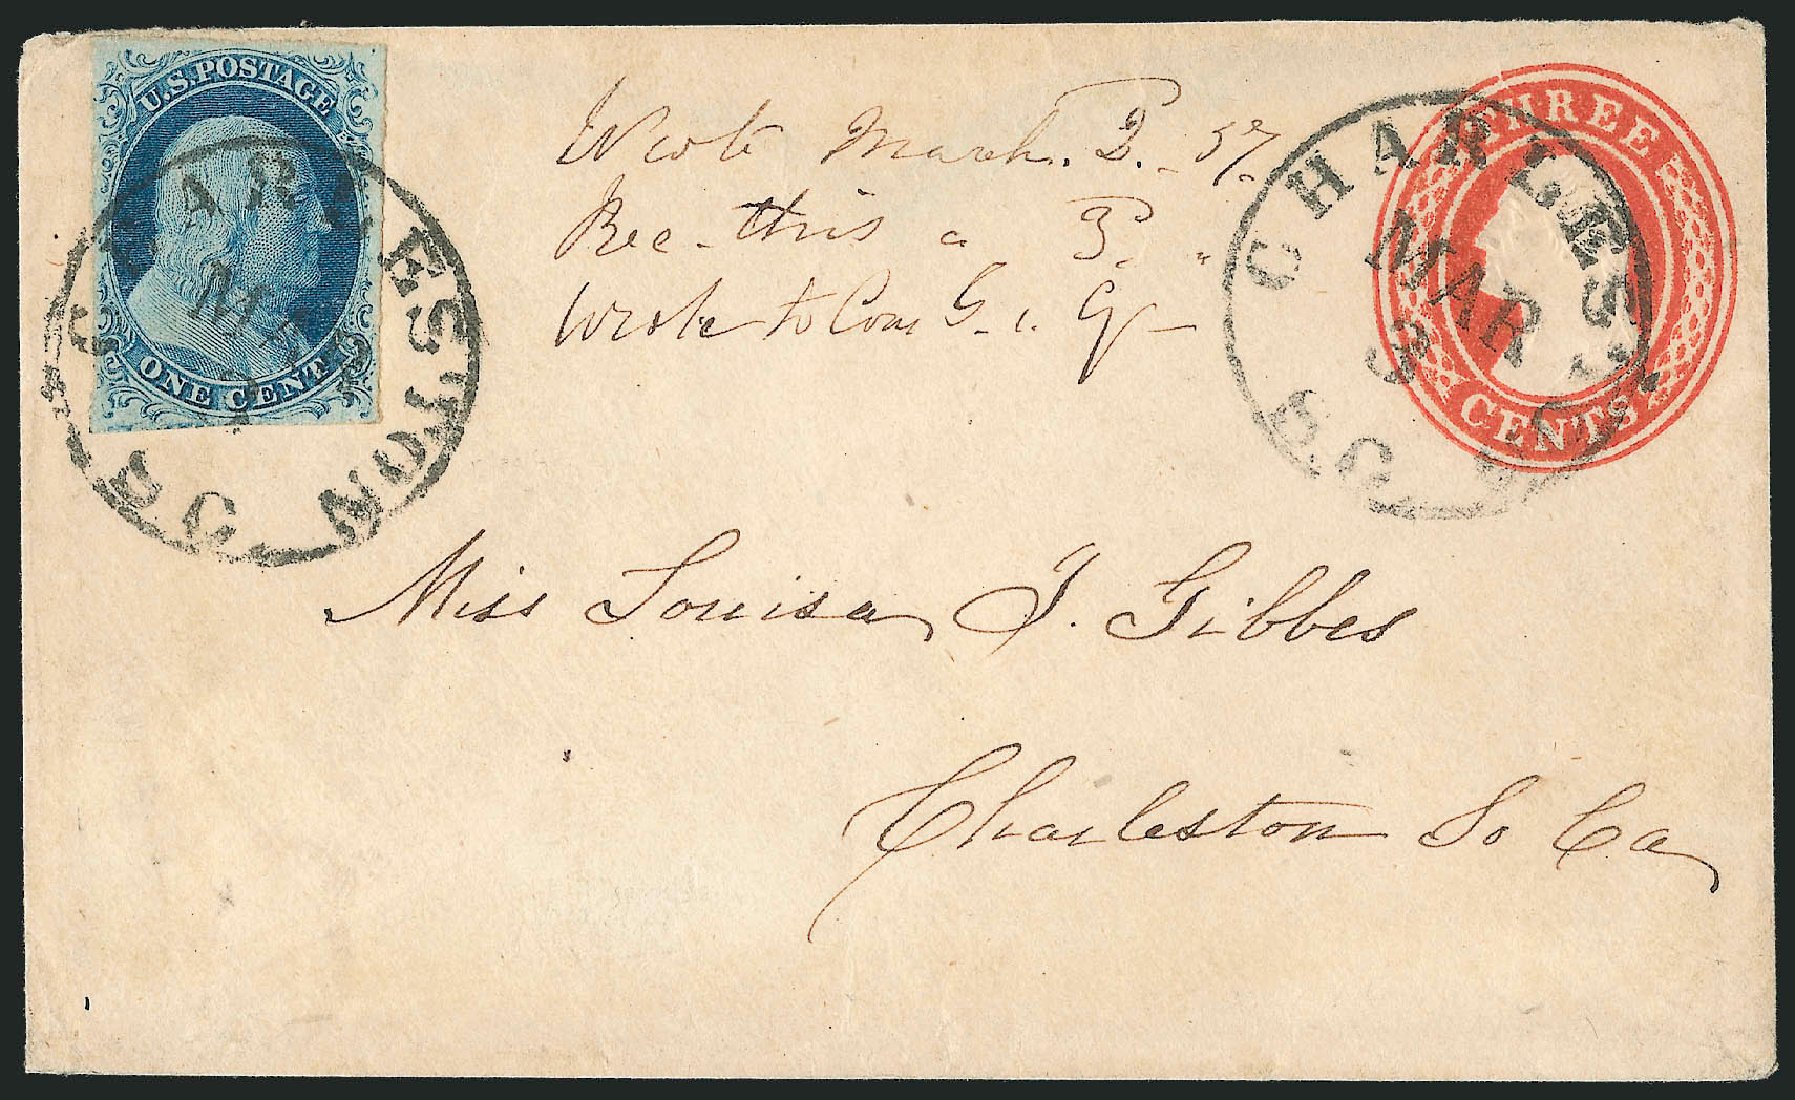 U.S. POSTAGE
ONE CENT
CHARLESTON S.C.
MAR
3
Wrote March. 2. 57.
Rec - this a 3. "
Wrote to Com G.
THREE
CENTS
CHARLESTON
MAR
3
SO CA
Miss Louisa J. Gibbes
Charleston So Ca